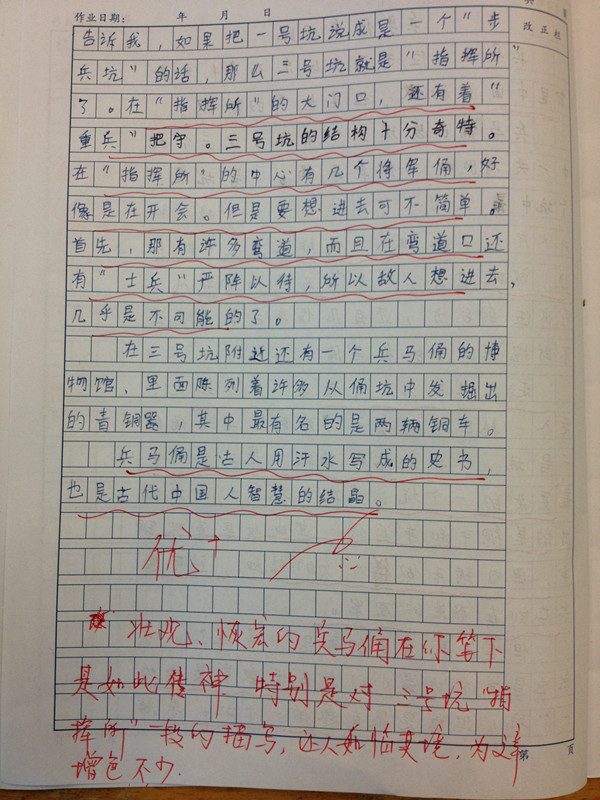 作业日期： 年 月 日
改正栏
告诉我，如果把一号坑说成是一个"步
兵坑"的话，那么三号坑就是"指挥所"
了。在"指挥所"的大门口，还有着"
重兵"把守。三号坑的结构十分奇特。
在"指挥所"的中心有几个将军俑，好
像是在开会。但是要想进去可不简单。
首先，那有许多弯道，而且在弯道口还
有"士兵"严阵以待，所以敌人想进去，
几乎是不可能的了。
在三号坑附近还有一个兵马俑的博
物馆，里面陈列着许多从俑坑中发掘出
的青铜器，其中最有名的是两辆铜车。
兵马俑是古人用汗水写成的史书，
也是古代中国人智慧的结晶。
优↑
壮观、恢宏的兵马俑在你笔下
是如此传神 特别是对三号坑"指
挥所"一段的描写，让人如临其境，为文章
增色不少.
第 页